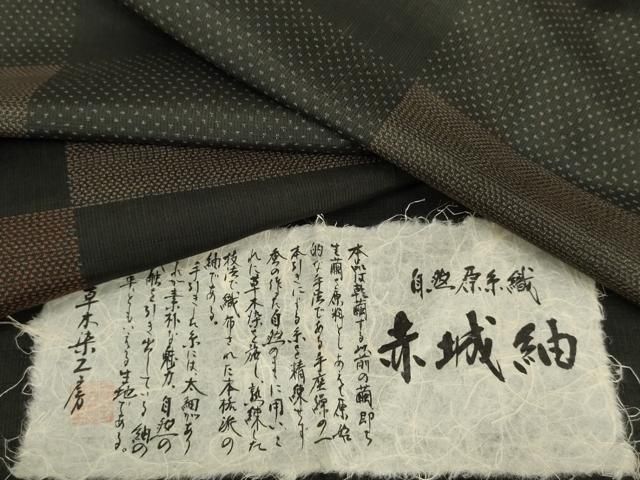 自然原糸織
赤城紬
本品は乾繭する以前の繭即ち
生繭を原料としあくまで原始
的な手法である手座繰の一
本引きによる糸を精練せず
蚕の作る自然のままに用いこ
れに草木染を施し熟練した
技法で織布された本格派の
紬である。
手引きした糸には、太細があり
それが素朴な魅力、自然の
を引き出している紬の
ともいえる生地である。
草木染工房